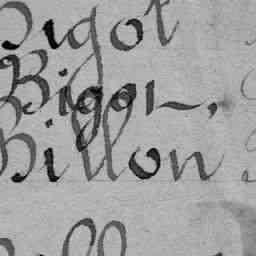 Bigot
Bigot,
Billon